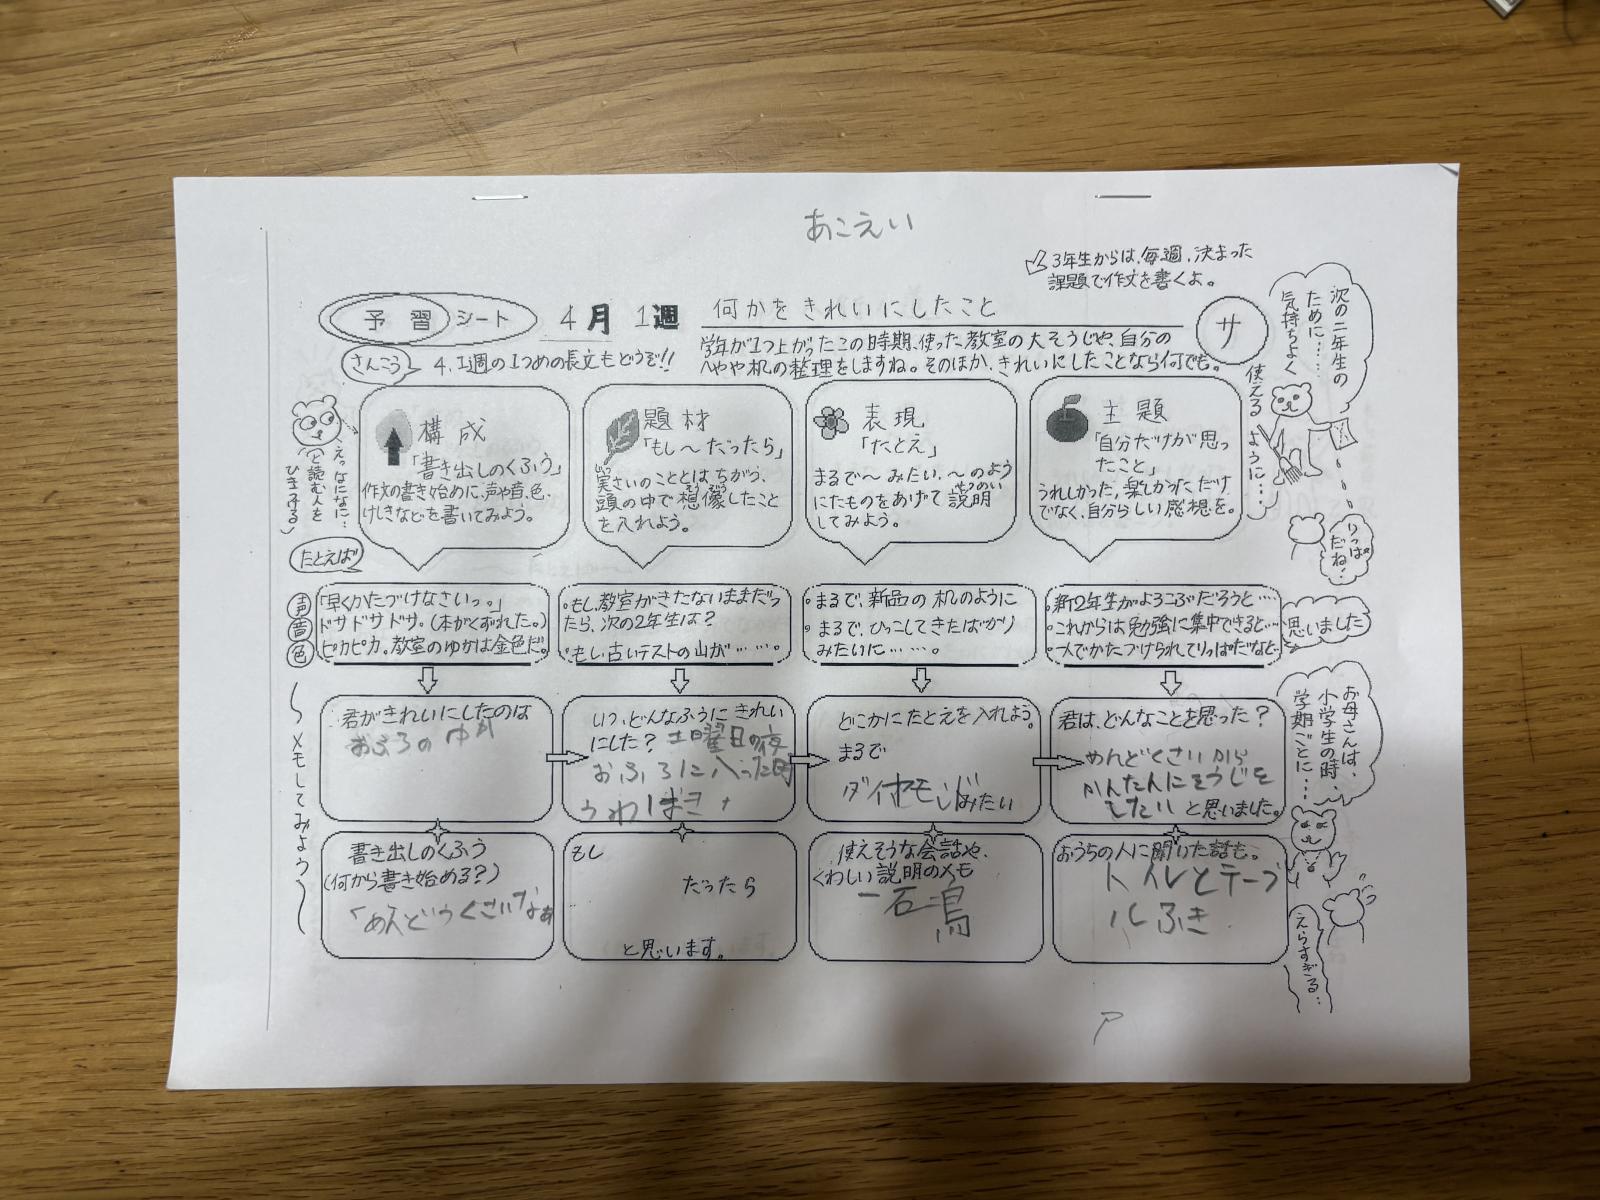 あこえい
3年生からは、毎週、決まった
課題で作文を書くよ。
予習シート 4月 1週 何かをきれいにしたこと
サ
学年が1つ上がったこの時期、使った教室の大そうじや、自分の
へやや机の整理をしますね。そのほか、きれいにしたことなら何でも。
さんこう 4.1週の1つめの長文もどうぞ!!
次の二年生の
ために……
気持ちよく
使えるように…
りっぱ
だね!
えっなになに…
(と読む人を
ひきつける)
構成
「書き出しのくふう」
作文の書き始めに、声や音、色、
けしきなどを書いてみよう。
題材
「もし〜だったら」
実さいのこととはちがう、
頭の中で想像したこと
を入れよう。
表現
「たとえ」
まるで〜みたい、〜のよう
にたものをあげて説明
してみよう。
主題
「自分だけが思っ
たこと」
うれしかった、楽しかっただけ
でなく、自分らしい感想を。
たとえば
声
音
色
「早くかたづけなさいっ。」
ドサドサドサ。(本がくずれた。)
ピカピカ。教室のゆかは金色だ。
・もし、教室がきたないままだっ
たら、次の2年生は?
・もし、古いテストの山が……。
・まるで、新品の机のように
・まるで、ひっこしてきたばかり
みたいに……。
・新2年生がよろこぶだろうと…
・これからは勉強に集中できると…
・一人でかたづけられてりっぱだなと…
思いました
〜メモしてみよう〜
君がきれいにしたのは
おふろの中
いつ、どんなふうにきれい
にした? 土曜日の夜
おふろに入った時
うわばき
どこかにたとえを入れよう。
まるで
ダイヤモンドみたい
君は、どんなことを思った?
めんどくさいから
かんたんにそうじを
したい と思いました。
書き出しのくふう
(何から書き始める?)
「めんどうくさいなぁ
もし
だったら
と思います。
使えそうな会話や、
くわしい説明のメモ
一石鳥
おうちの人に聞いた話も。
トイレとテーブ
ルふき
お母さんは、
小学生の時、
学期ごとに…
えらすぎる…
ア